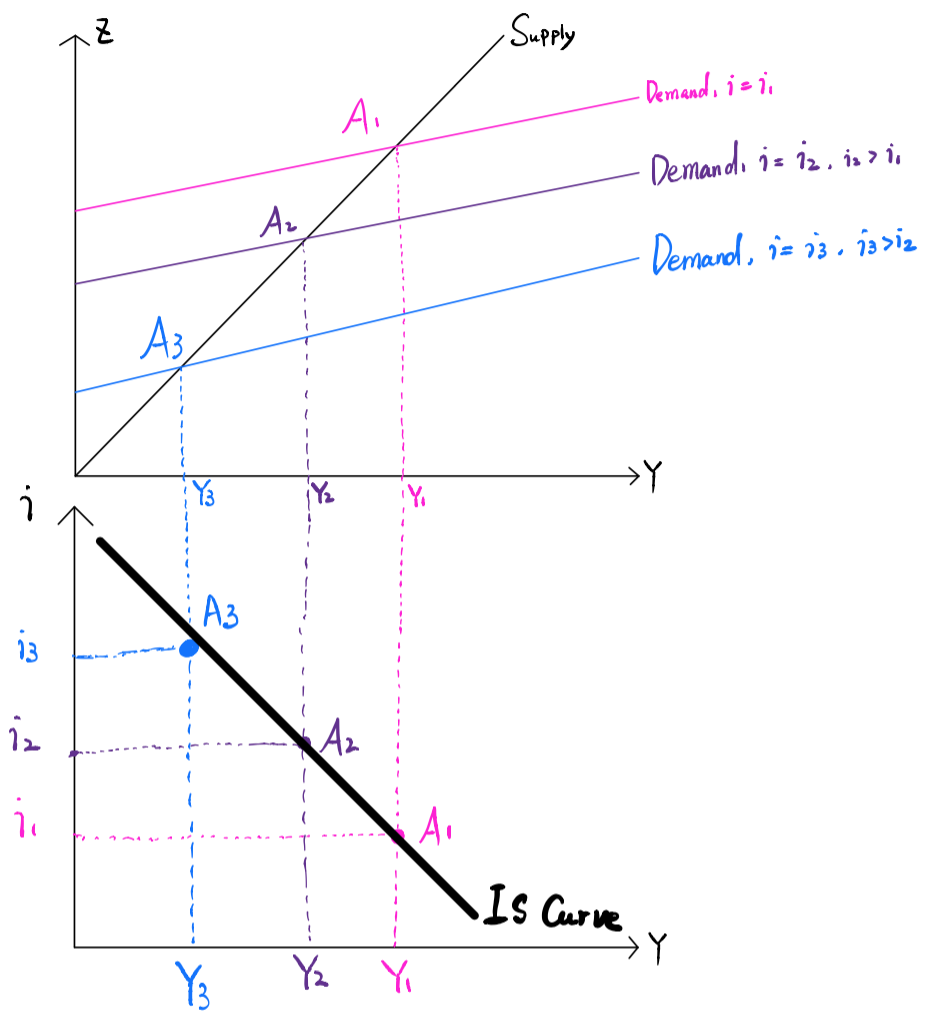 Z
Supply
Demand, i = i1
A1
Demand, i = i2, i2 > i1
A2
Demand, i = i3, i3 > i2
A3
Y
Y3
Y2
Y1
i
A3
i3
A2
i2
A1
i1
IS Curve
Y
Y3
Y2
Y1